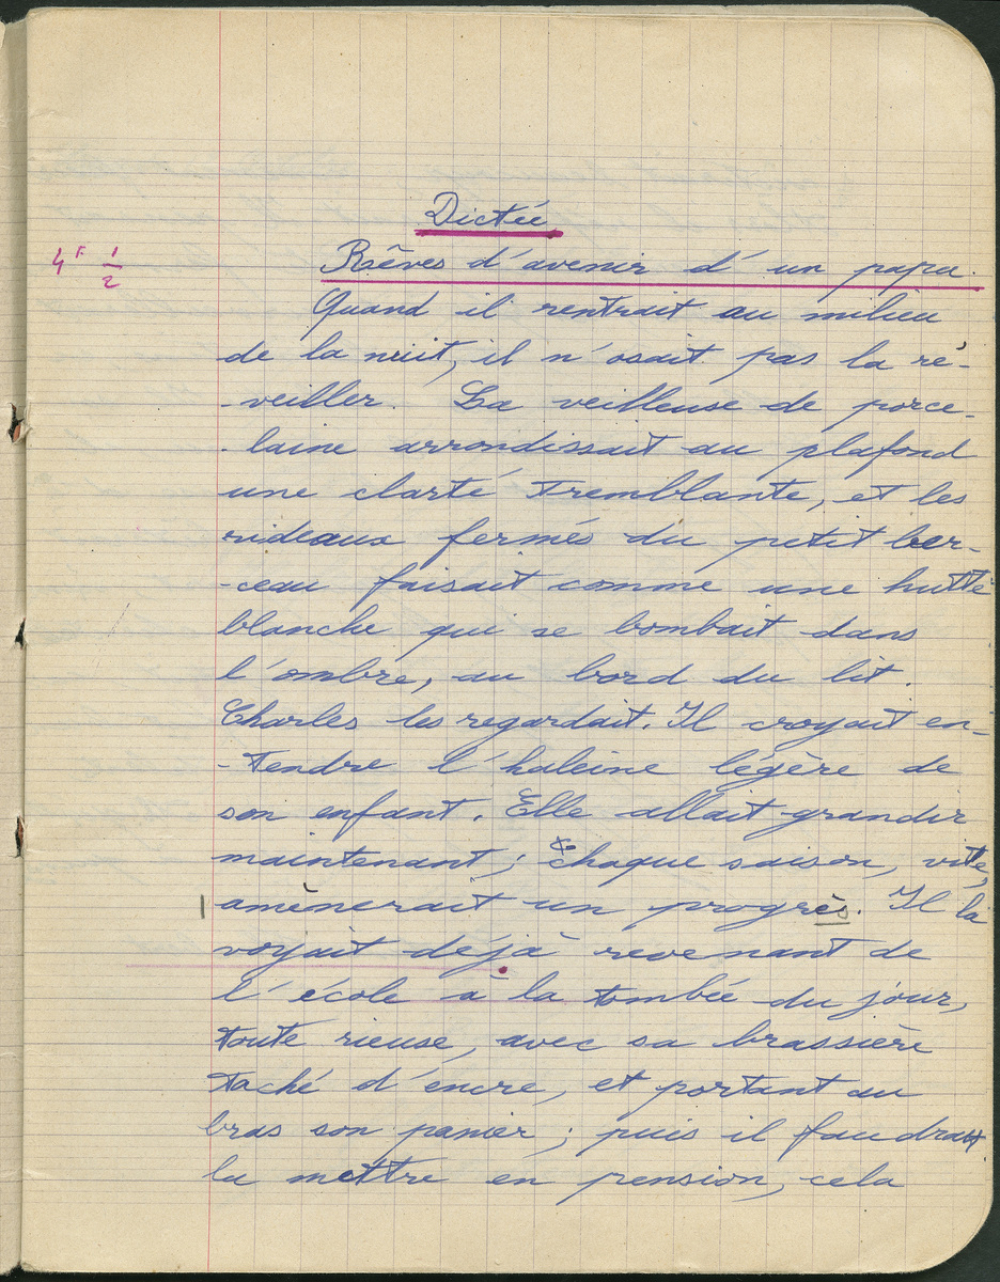 Dictée
4F 1/2
Rêves d'avenir d'un papa.
Quand il rentrait au milieu
de la nuit, il n'osait pas la ré-
-veiller. La veilleuse de porce-
-laine arrondissait au plafond
une clarté tremblante, et les
rideaux fermés du petit ber-
-ceau faisait comme une hutte
blanche qui se bombait dans
l'ombre, au bord du lit.
Charles les regardait. Il croyait en-
-tendre l'haleine légère de
son enfant. Elle allait grandir
maintenant; chaque saison, vite,
amènerait un progrès. Il la
voyait déjà revenant de
l'école à la tombée du jour,
toute rieuse, avec sa brassière
taché d'encre, et portant au
bras son panier; puis il faudrait
la mettre en pension, cela